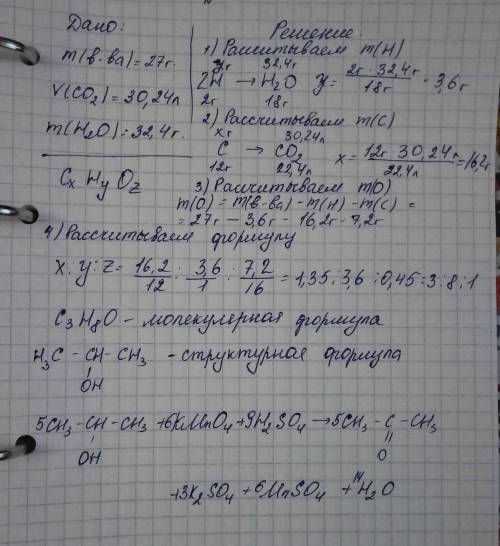 Дано:
m(в-ва)=27г.
V(CO2)=30,24л
m(H2O)=32,4г.
CxHyOz
Решение:
1) Рассчитываем m(H)
yг 32,4г
2H → H2O y = 2г · 32,4г / 18г = 3,6г
2г 18г
2) Рассчитываем m(C)
xг 30,24л
C → CO2 x = 12г · 30,24л / 22,4л = 16,2г
12г 22,4л
3) Рассчитываем m(O)
m(O) = m(в-ва) - m(H) - m(C) =
= 27г - 3,6г - 16,2г - 7,2г
4) Рассчитываем формулу
x:y:z = 16,2/12 : 3,6/1 : 7,2/16 = 1,35:3,6:0,45=3:8:1
C3H8O - молекулярная формула
H3C - CH - CH3 - структурная формула
OH
5CH3 - CH - CH3 +6KMnO4+9H2SO4→5CH3 - C - CH3
OH O
+3K2SO4 +6MnSO4 +14H2O